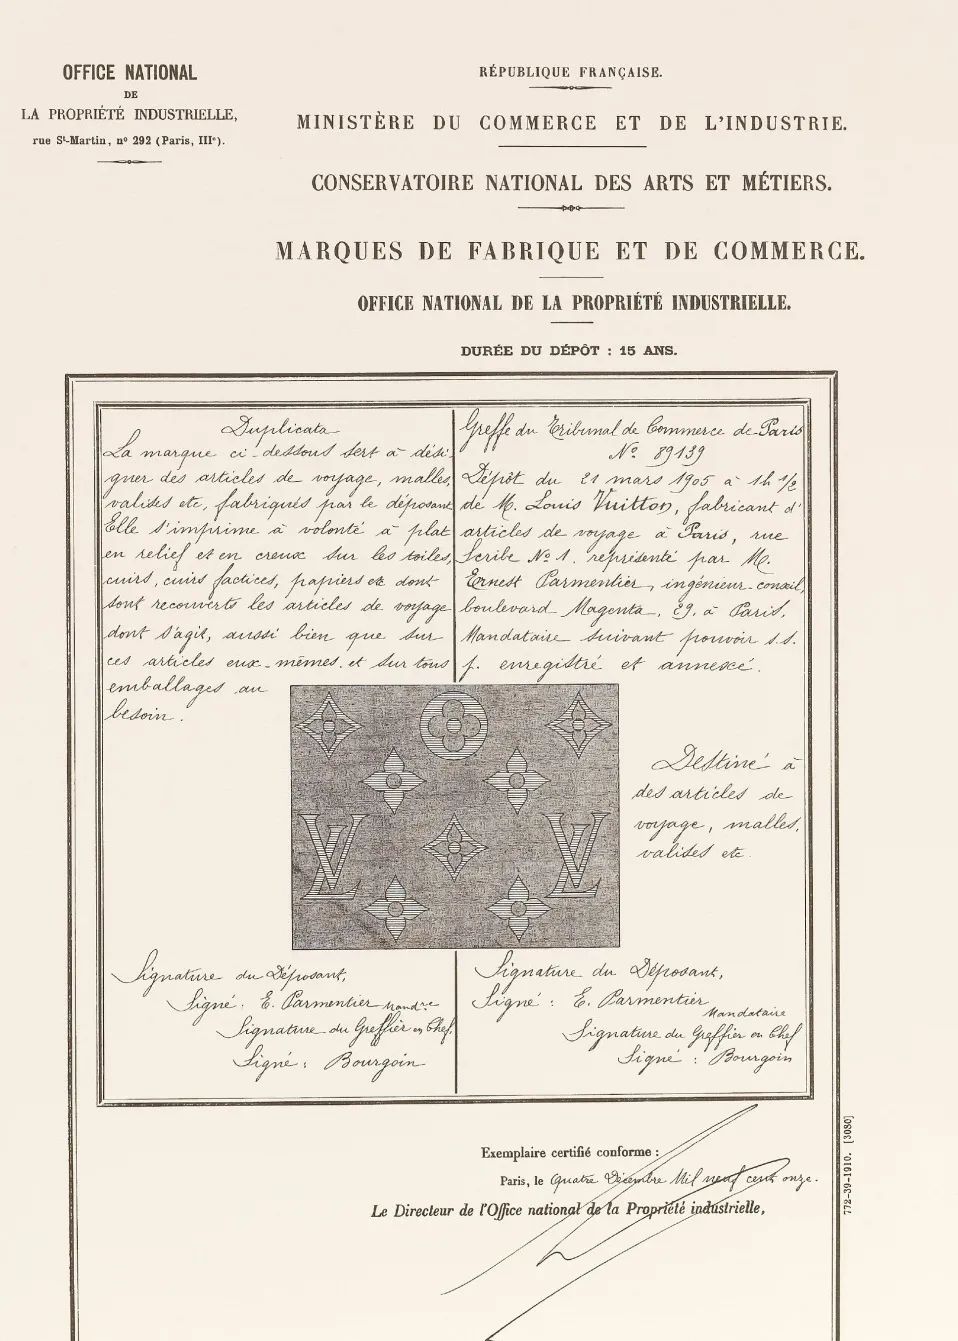 OFFICE NATIONAL
DE
LA PROPRIÉTÉ INDUSTRIELLE,
rue St-Martin, nº 292 (Paris, IIIe).
RÉPUBLIQUE FRANÇAISE.
MINISTÈRE DU COMMERCE ET DE L'INDUSTRIE.
CONSERVATOIRE NATIONAL DES ARTS ET MÉTIERS.
MARQUES DE FABRIQUE ET DE COMMERCE.
OFFICE NATIONAL DE LA PROPRIÉTÉ INDUSTRIELLE.
DURÉE DU DÉPÔT : 15 ANS.
Duplicata
La marque ci-dessous sert à dési-
gner des articles de voyage, malles,
valises etc, fabriqués par le déposant
Elle s'imprime à volonté à plat
en relief et en creux sur les toiles,
cuirs, cuirs factices, papiers etc dont
sont recouverts les articles de voyage
dont s'agit, aussi bien que sur
ces articles eux-mêmes. et sur tous
emballages au
besoin.
Greffe du Tribunal de Commerce de Paris
Nº 89139
Dépôt du 21 mars 1905 à 1h 1/2
de M. Louis Vuitton, fabricant d'
articles de voyage à Paris, rue
Scribe Nº 1. représenté par M.
Ernest Parmentier, ingénieur-conseil,
boulevard Magenta, 29, à Paris,
Mandataire suivant pouvoir s.s.
p. enregistré et annexé.
LV
LV
Destiné à
des articles de
voyage, malles,
valises etc.
Signature du Déposant,
Signé : E. Parmentier Mandre
Signature du Greffier en Chef.
Signé : Bourgoin
Signature du Déposant,
Signé : E. Parmentier
Mandataire
Signature du Greffier en Chef
Signé : Bourgoin
Exemplaire certifié conforme :
Paris, le Quatre Décembre Mil neuf cent onze.
Le Directeur de l'Office national de la Propriété industrielle,
772-39-1910. [3080]